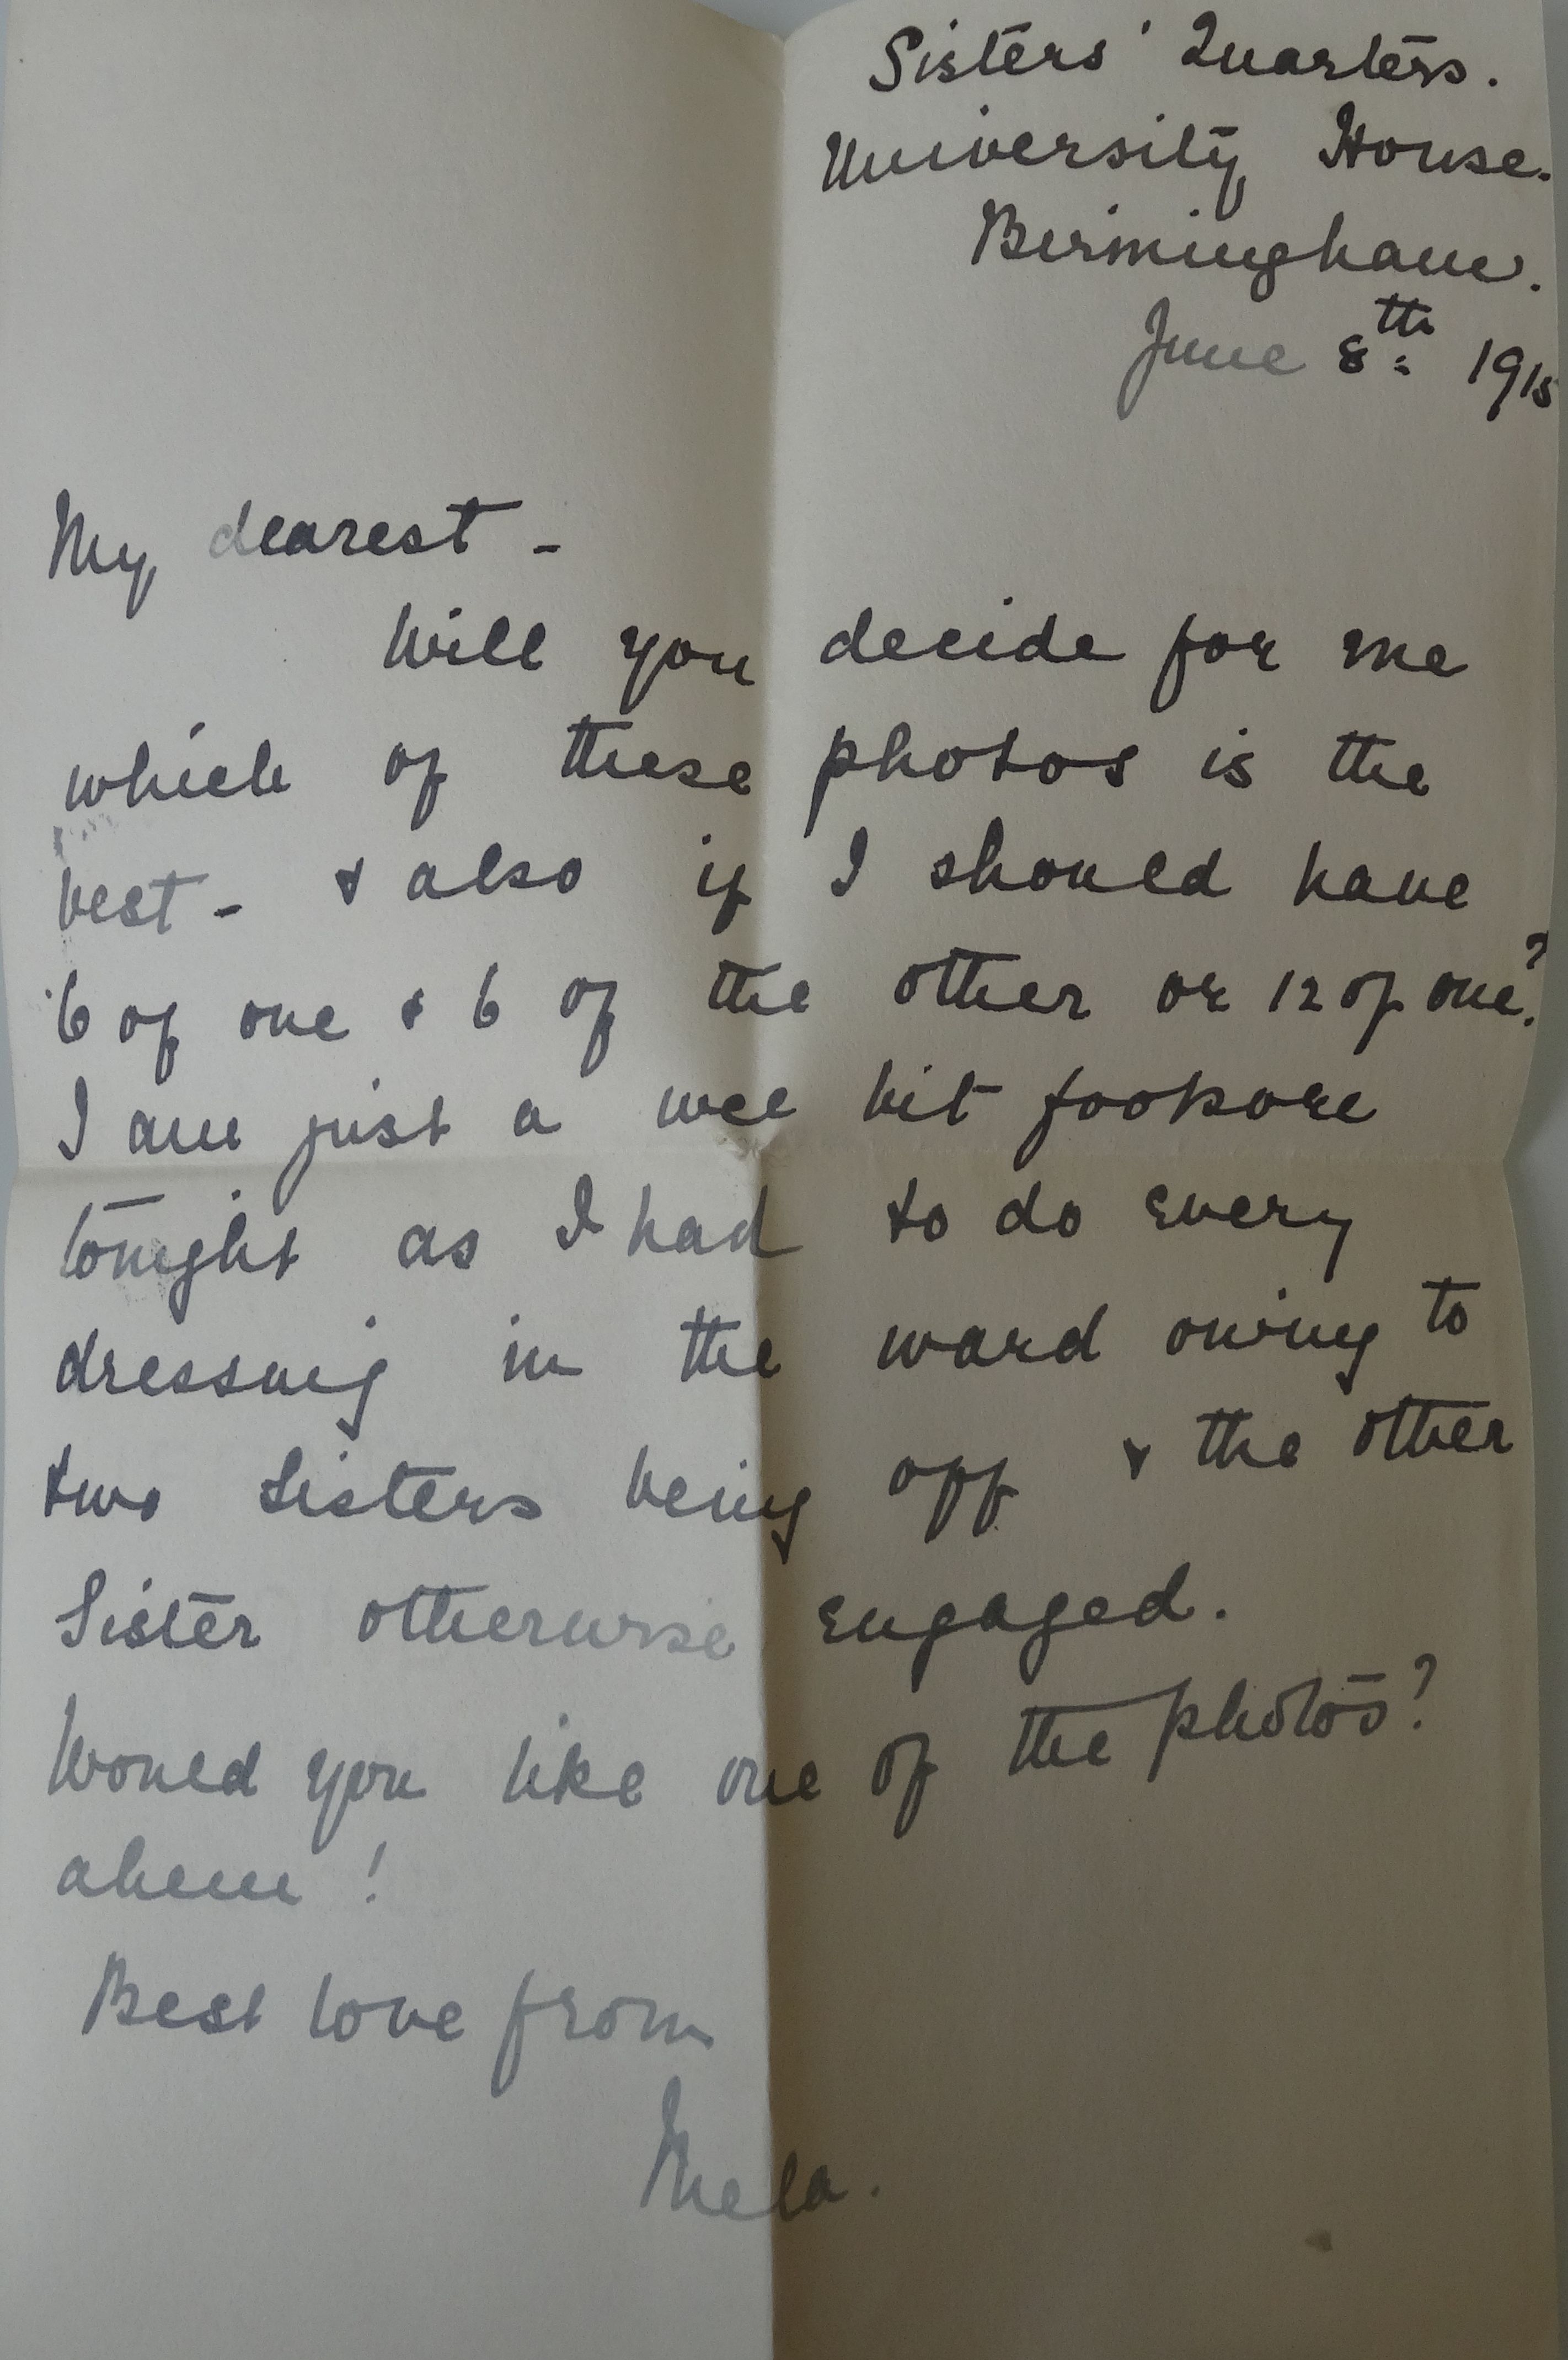 Sisters' Quarters.
University House.
Birmingham.
June 8th: 1915
My dearest -
Will you decide for me
which of these photos is the
best - & also if I should have
6 of one & 6 of the other or 12 of one?
I am just a wee bit footsore
tonight as I had to do every
dressing in the ward owing to
two Sisters being off & the other
Sister otherwise engaged.
Would you like one of the photos?
ahem!
Best love from
Mela.